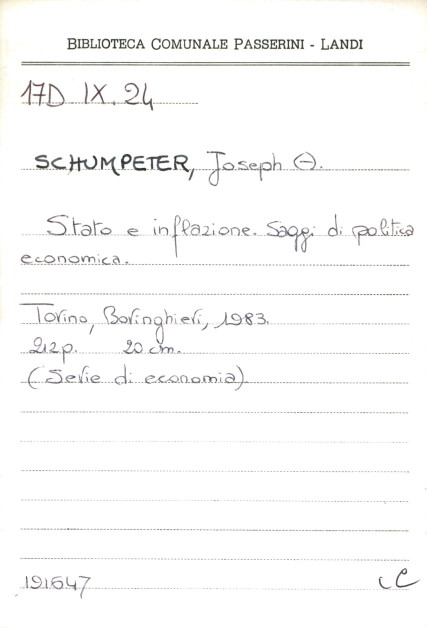 BIBLIOTECA COMUNALE PASSERINI - LANDI
17D IX. 24
SCHUMPETER, Joseph A.
Stato e inflazione. Saggi di politica
economica.
Torino, Boringhieri, 1983.
212 p. 20 cm.
(Serie di economia).
191647